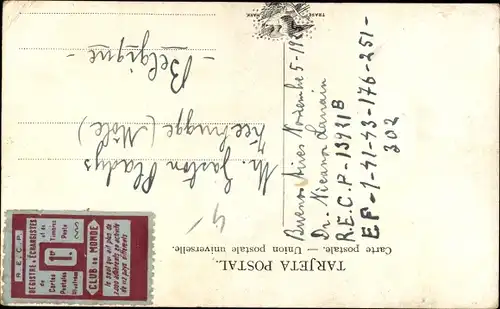 TARJETA POSTAL.
Carte postale. — Union postale universelle.
TRADE MARK
Buenos Aires Noviembre 5-19
Dr. Nicanor
R.E.C.P-13921B
EP-1-41-43-176-251-
302
Mr. Gaston Pladys
Zeebrugge (Môle)
- Belgique -
R.E.C.P.
REGISTRE D'ÉCHANGISTES
de
Cartes
Postales
et de
Timbres
Poste
CLUB DU MONDE